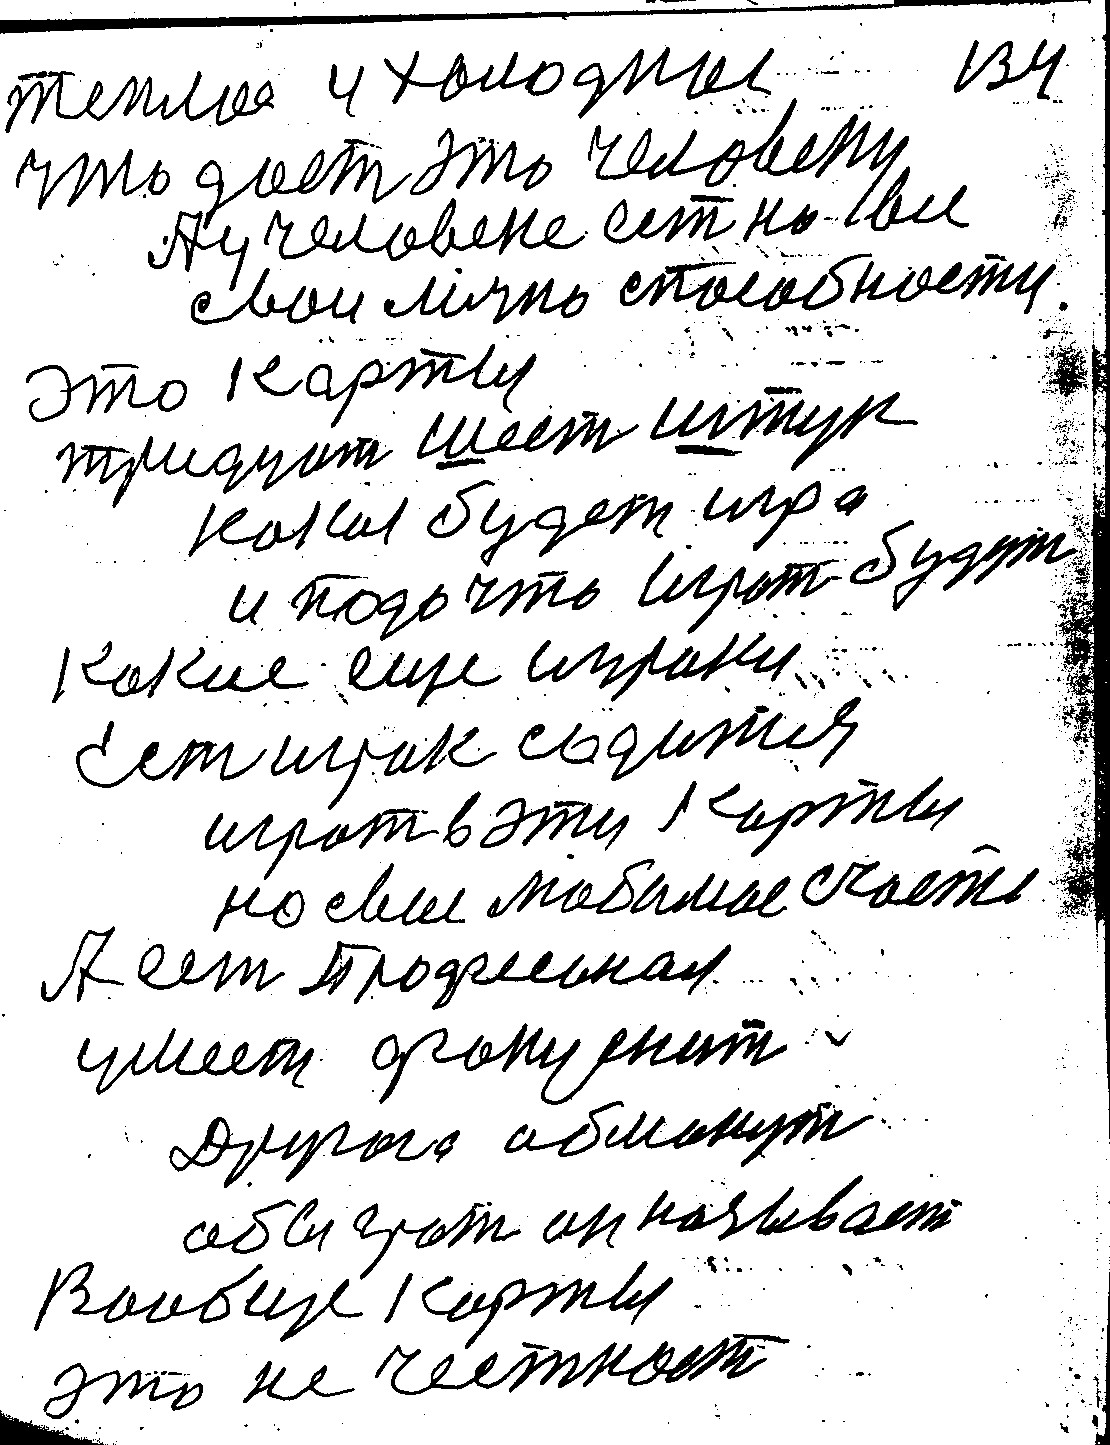 теплое и холодныи 134
что дает это человеку
А у человека ест на все
свои лично способности.
Это Карты
тридцат шест штук
какая будет игра
и подо что играт будет
Какие еще игроки
Ест игрок садится
играт в эти Карты
на свое любимое счасть
А ест професионал
умеет фокусничат
Другога обманут
обыграт он называет
Вообще Карты
это не честност